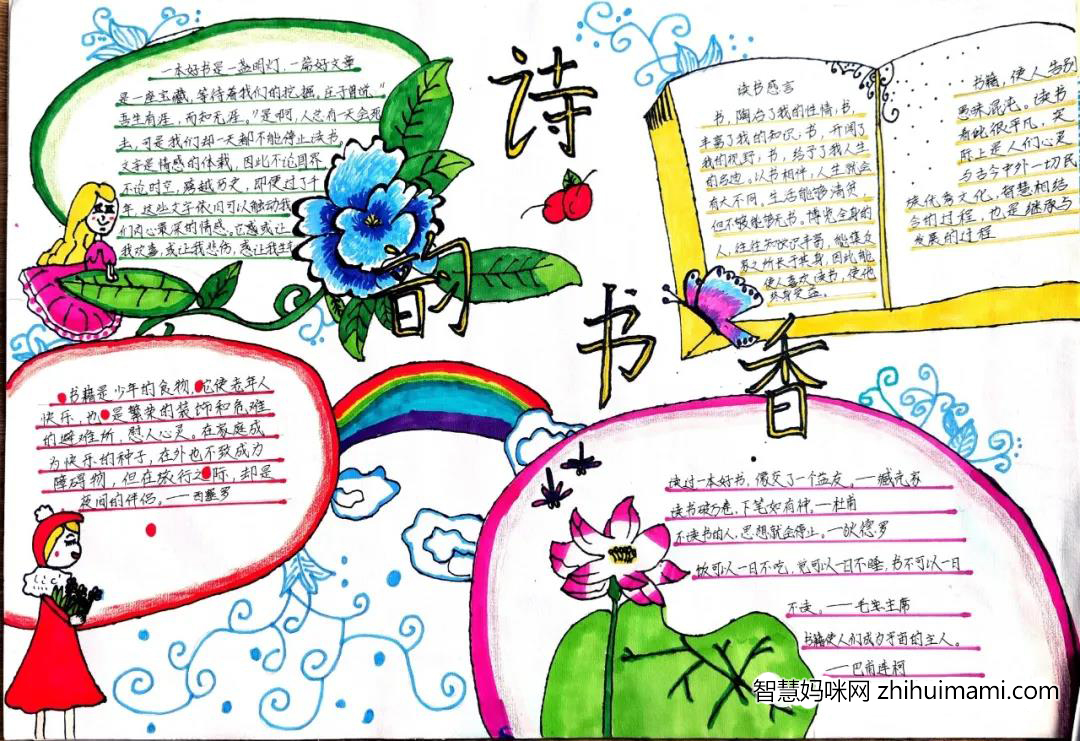 诗
的
书
香
一本好书是一盏明灯,一篇好文章
是一座宝藏,等待着我们的挖掘。庄子曾说:“
吾生有涯,而知无涯。”是啊,人总有一天会死
去,可是我们却一天都不能停止读书。
文字是情感的体裁,因此不论国界
不论时空,跨越历史,即便过了千
年,这些文字依旧可以触动我
们内心最深的情感。它或让
我欢喜,或让我悲伤,或让我
读书感言
书,陶冶了我的性情,书,
丰富了我的知识;书,开阔了
我的视野,书,给予了我人生
的启迪。以书相伴,人生就会
有大不同。生活能够清贫,
但不能够无书。博览全身的
人,往往知识丰富,能集众
家之所长于其身,因此能
使人喜欢读书,使他
终身受益。
书籍,使人告别
愚昧混沌。读书
看此很平凡,实
际上是人们心灵
与古今中外一切民
族优秀文化,智慧相结
合的过程,也是继承与
发展的过程
书籍是少年的食物,它使老年人
快乐,也是繁荣的装饰和危难
的避难所,慰人心灵。在家庭成
为快乐的种子,在外也不致成为
障碍物,但在旅行之际,却是
夜间的伴侣。——西塞罗
读过一本好书,像交了一个益友。——臧克家
读书破万卷,下笔如有神。—杜甫
不读书的人,思想就会停止。—狄德罗
饭可以一日不吃,觉可以一日不睡,书不可以一日
不读。——毛主席
书籍使人们成为宇宙的主人。
——巴甫连柯
智慧妈咪网 zhihuimami.com